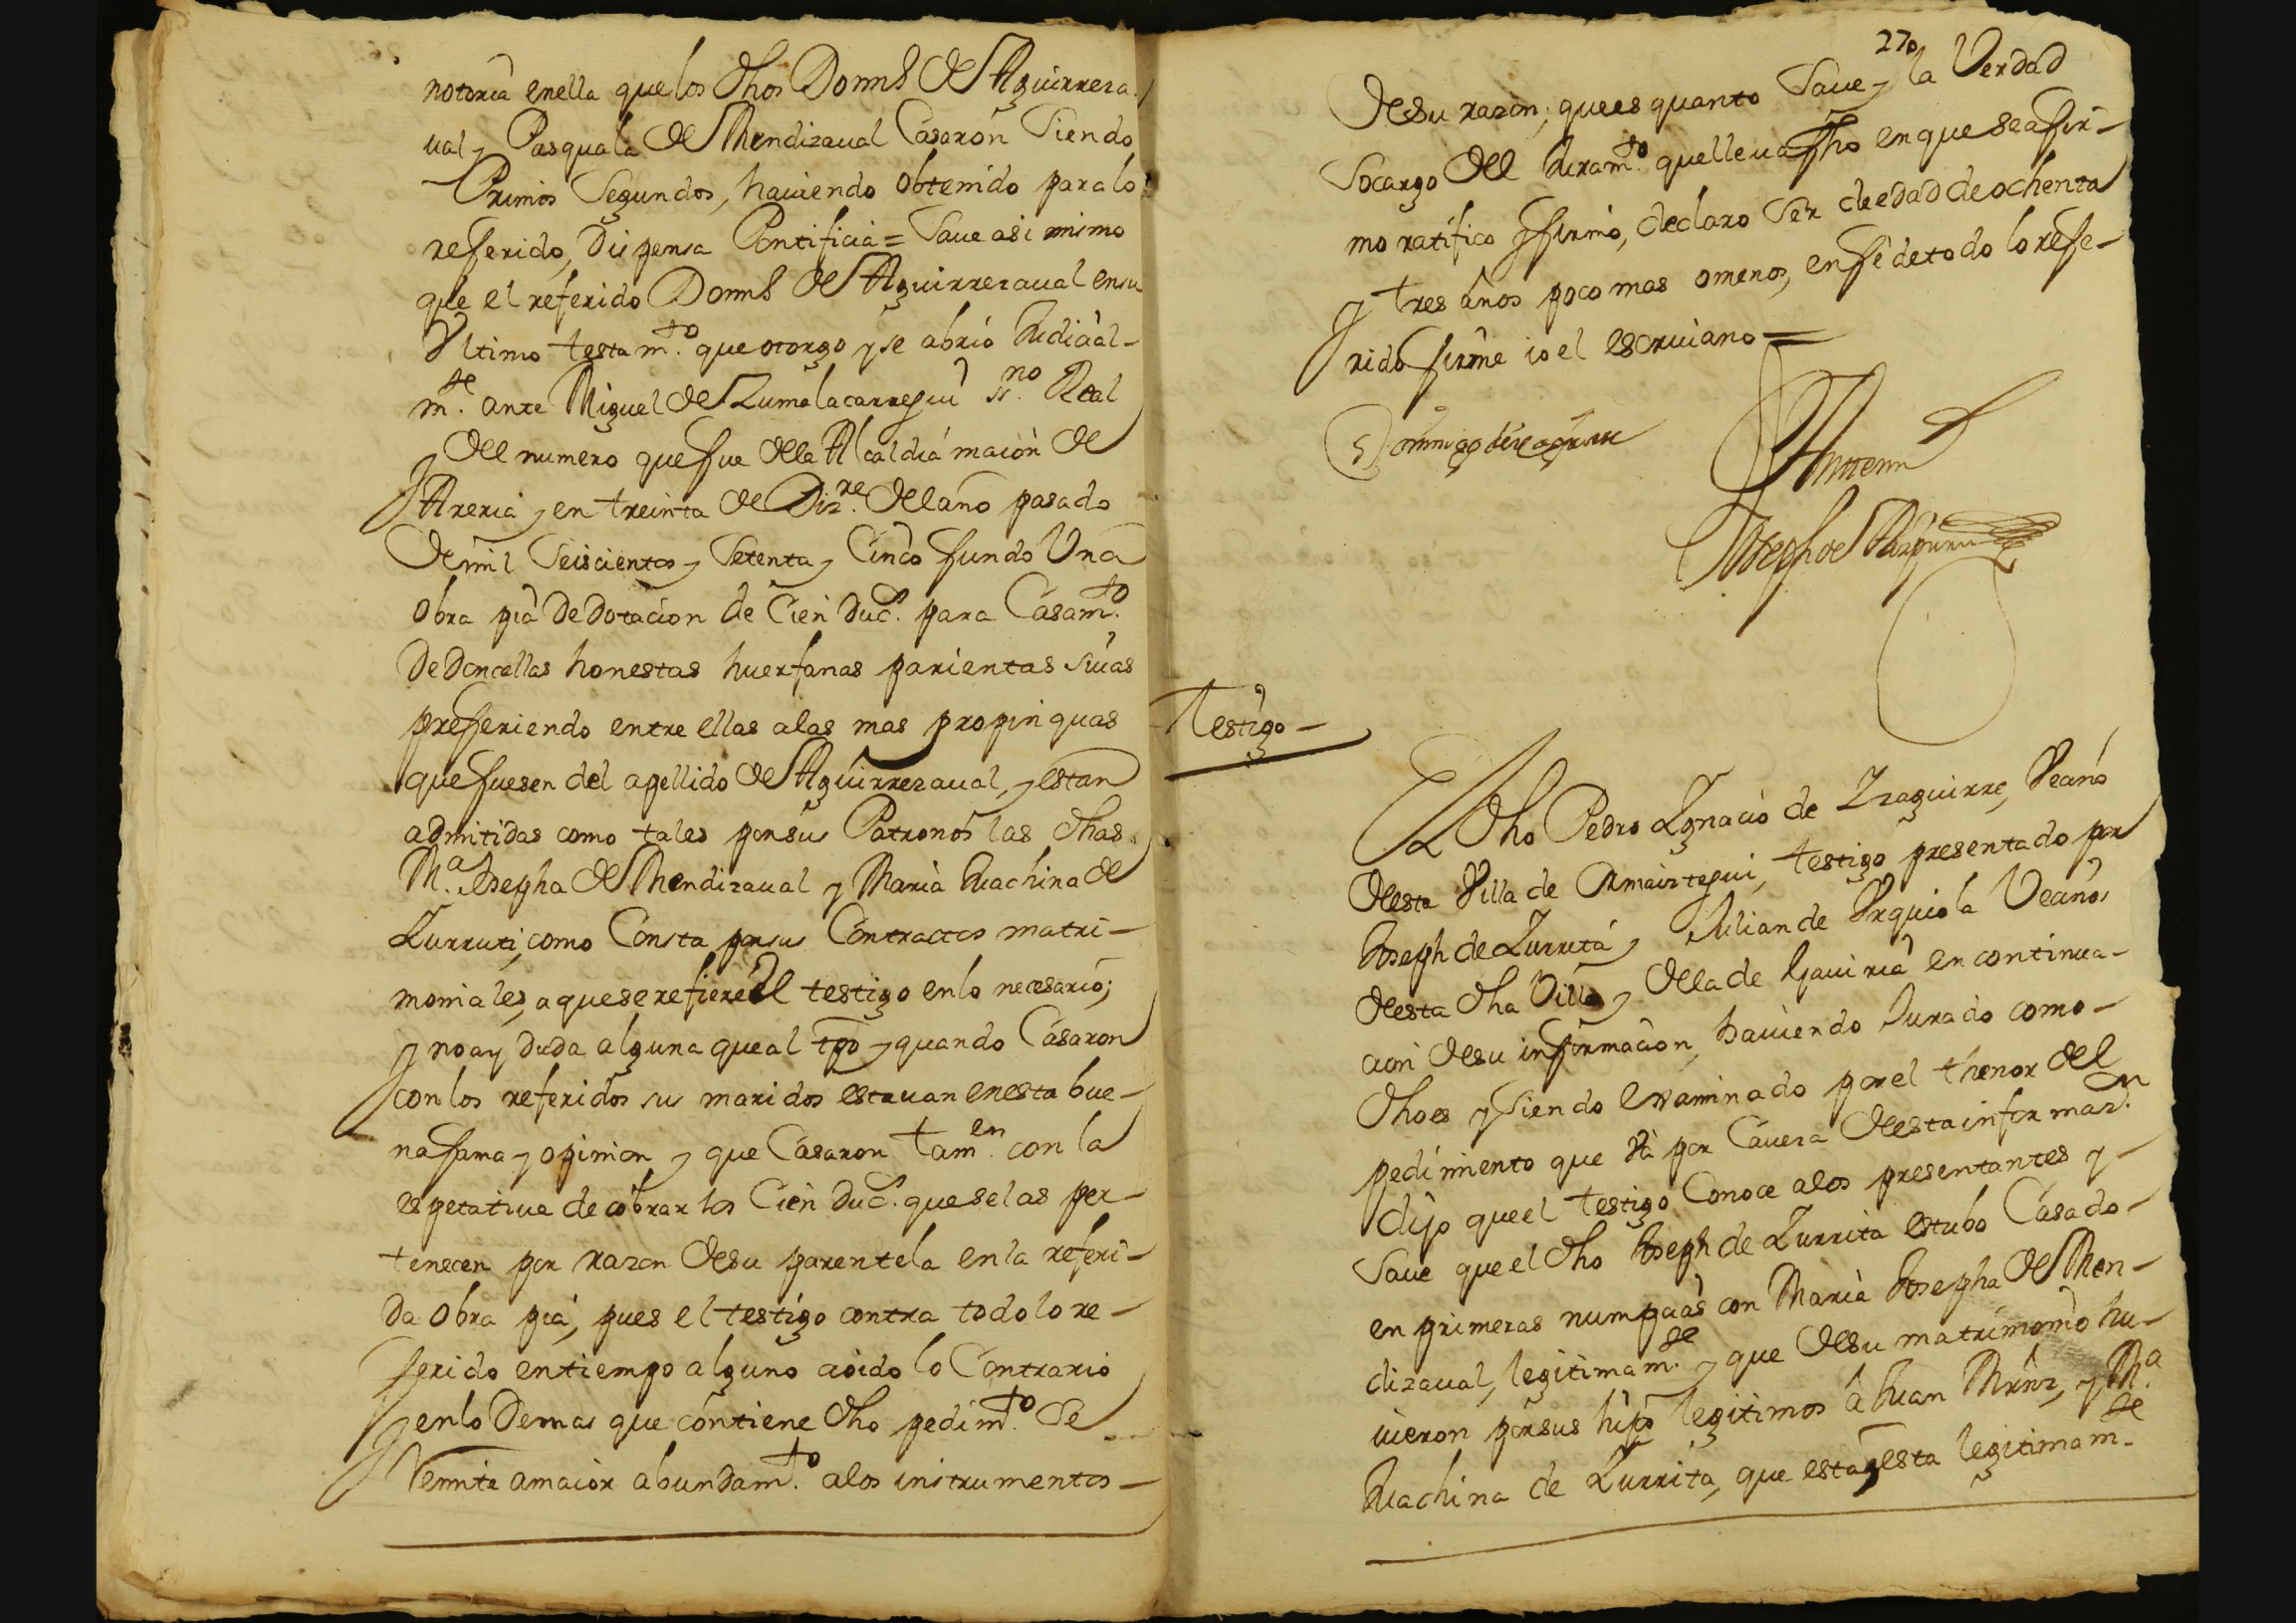 notoria enella que los dhos Doms de Aguirreza
ual y Pasquala de Mendizaual Casaron Siendo
Primos Segundos, hauiendo obtenido paralo
referido, Dispensa Pontificia = Saue asi mismo
que el referido Doms de Aguirrezaual ensu
Vltimo testam.to que otorgo y se abrio Judicial-
m.te ante Miguel de Zumalacarregui ss.no Real
y del numero que fue dela Alcaldia maior de
Areria y en treinta de Diz.re del año pasado
de mil Seiscientos y Setenta y Cinco fundo Una
obra pia de Dotacion de Cien Duc.s para Casam.to
de Doncellas honestas huerfanas parientas suias
prefferiendo entre ellas alas mas propinquas
que fuesen del apellido de Aguirrezaual, y estan
admitidas como tales por sus Patronos las dhas
M.a Josepha de Mendizaual y Maria Juachina de
Zurruti, como Consta por sus Contractos matri-
moniales, aque se refiere el testigo enlo necesario;
y no ay duda alguna que al tpo y quando Casaron
con los referidos sus maridos estauan enesta bue-
na fama y opinion y que Casaron tam.en con la
espetatiua de cobrar los Cien Duc.s que selas per-
tenecen por razon desu parentela en la referi-
da obra pia, pues el testigo contra todo lo re-
ferido entiempo alguno a oido lo Contrario
y enlo Demas que contiene dho pedim.to Se
Remite amaior abundam.to alos instrumentos-
270
desu razon; que es quanto Saue y la Verdad
Socargo del Juram.to que lleua ffho en que se afir-
mo ratifico y firmo, declaro Ser de edad de ochenta
y tres años poco mas omenos, enffe de todo lo refe-
rido firme io el escriuano =
Domingo de
Antemi
Joseph de
Testigo-
El dho Pedro Ygnacio de Yzaguirre, Veano
desta Villa de Ormaiztegui, testigo presentado por
Joseph de Zurruta y Julian de Vrquiola Veanos
desta dha Villa y dela de Gauiria en continua-
cion desu informacion, hauiendo Jurado como-
dho es y Siendo examinado por el thenor del
pedimiento que va por Cauera desta informaz.on
dijo que el testigo Conoce alos presentantes y-
Saue que el dho Joseph de Zurrita estubo Casado-
en primeras numpcias con Maria Josepha de Men-
dizaual, legitimam.te y que desu matrimonio hu-
uieron por sus hijos legitimos à Juan Mrnz, y M.a
Juachina de Zurrita, que esta y esta legitimam.te